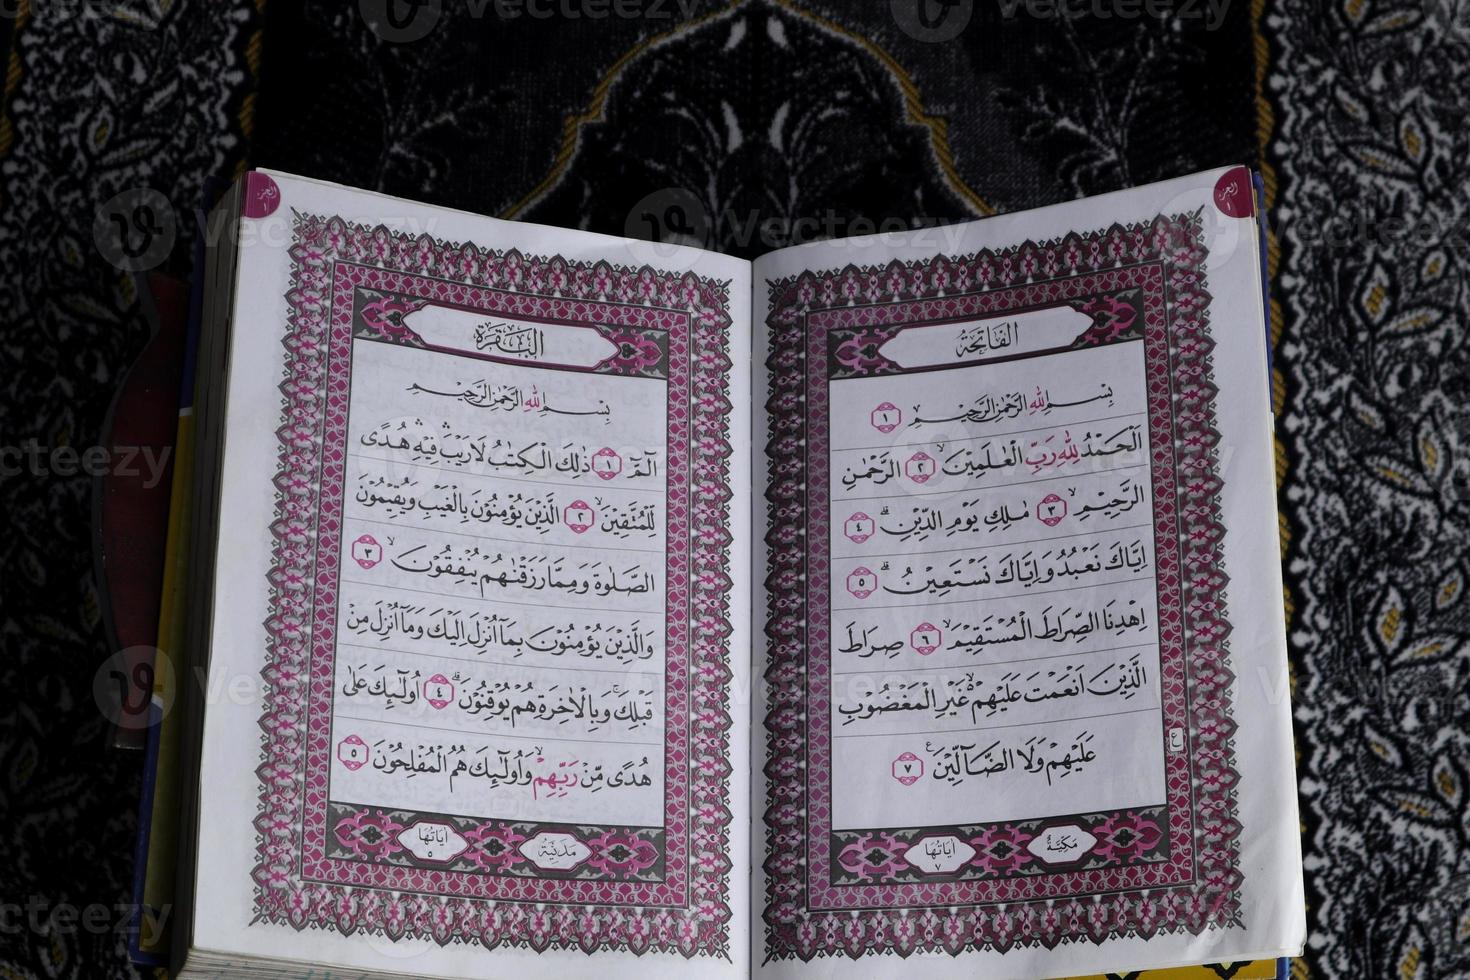 الجزء ١
الفَاتِحَةُ
بِسْمِ اللهِ الرَّحْمٰنِ الرَّحِيْمِ ١
اَلْحَمْدُ لِلّٰهِ رَبِّ الْعٰلَمِيْنَۙ ٢ الرَّحْمٰنِ
الرَّحِيْمِۙ ٣ مٰلِكِ يَوْمِ الدِّيْنِۗ ٤
اِيَّاكَ نَعْبُدُ وَاِيَّاكَ نَسْتَعِيْنُۗ ٥
اِهْدِنَا الصِّرَاطَ الْمُسْتَقِيْمَۙ ٦ صِرَاطَ
الَّذِيْنَ اَنْعَمْتَ عَلَيْهِمْ ەۙ غَيْرِ الْمَغْضُوْبِ
عَلَيْهِمْ وَلَا الضَّاۤلِّيْنَ ࣖ ٧
ع
مَكِّيَّةٌ
اٰيَاتُهَا ٧
الجزء ١
البَقَرَة
بِسْمِ اللهِ الرَّحْمٰنِ الرَّحِيْمِ
الۤمّۤ ١ ذٰلِكَ الْكِتٰبُ لَا رَيْبَۛ فِيْهِۛ هُدًى
لِّلْمُتَّقِيْنَۙ ٢ الَّذِيْنَ يُؤْمِنُوْنَ بِالْغَيْبِ وَيُقِيْمُوْنَ
الصَّلٰوةَ وَمِمَّا رَزَقْنٰهُمْ يُنْفِقُوْنَۙ ٣
وَالَّذِيْنَ يُؤْمِنُوْنَ بِمَآ اُنْزِلَ اِلَيْكَ وَمَآ اُنْزِلَ مِنْ
قَبْلِكَۚ وَبِالْاٰخِرَةِ هُمْ يُوْقِنُوْنَۗ ٤ اُولٰۤىِٕكَ عَلٰى
هُدًى مِّنْ رَّبِّهِمْۙ وَاُولٰۤىِٕكَ هُمُ الْمُفْلِحُوْنَ ٥
مَدَنِيَّة
اٰيَاتُهَا ٥
Vecteezy